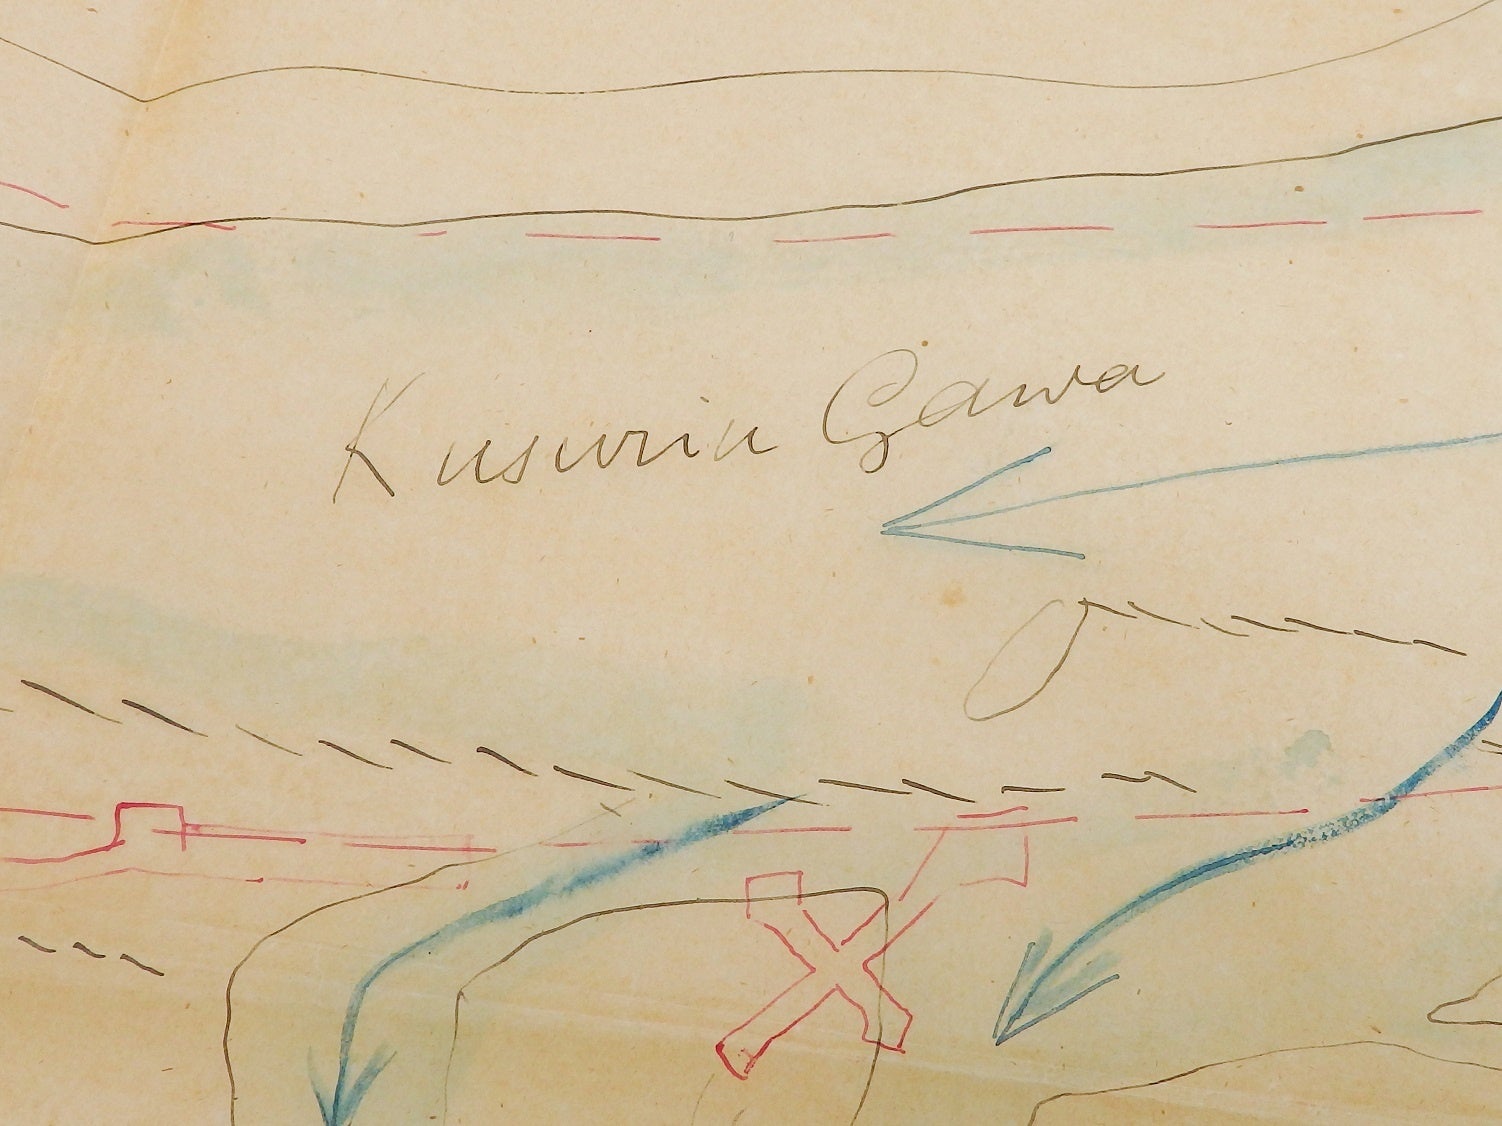 Kusuriu Gawa